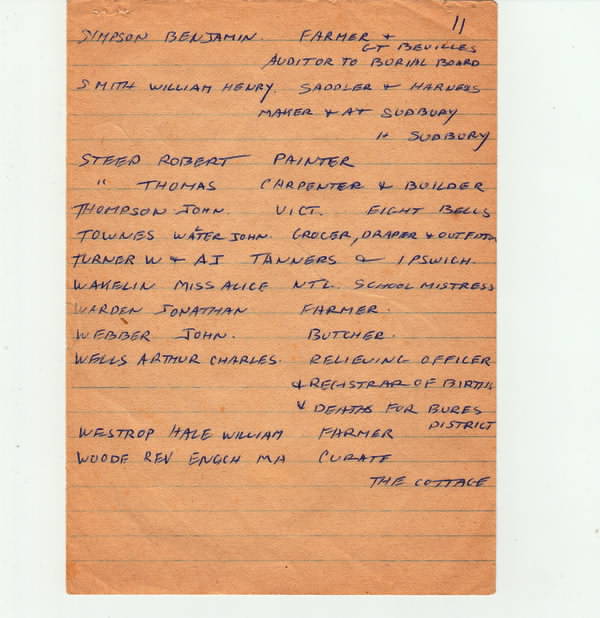 11
SIMPSON BENJAMIN. FARMER &
GT BEVILLES
AUDITOR TO BURIAL BOARD
SMITH WILLIAM HENRY. SADDLER & HARNESS
MAKER & AT SUDBURY
H SUDBURY
STEED ROBERT PAINTER
" THOMAS CARPENTER & BUILDER
THOMPSON JOHN. VICT. EIGHT BELLS
TOWNES WATER JOHN. GROCER, DRAPER & OUTFITTER
TURNER W & AJ TANNERS & IPSWICH.
WAKELIN MISS ALICE NTL. SCHOOL MISTRESS
WARDEN JONATHAN FARMER.
WEBBER JOHN. BUTCHER.
WELLS ARTHUR CHARLES. RELIEVING OFFICER
& REGISTRAR OF BIRTHS
& DEATHS FOR BURES
DISTRICT
WESTROP HALE WILLIAM FARMER
WOODE REV ENOCH MA CURATE
THE COTTAGE